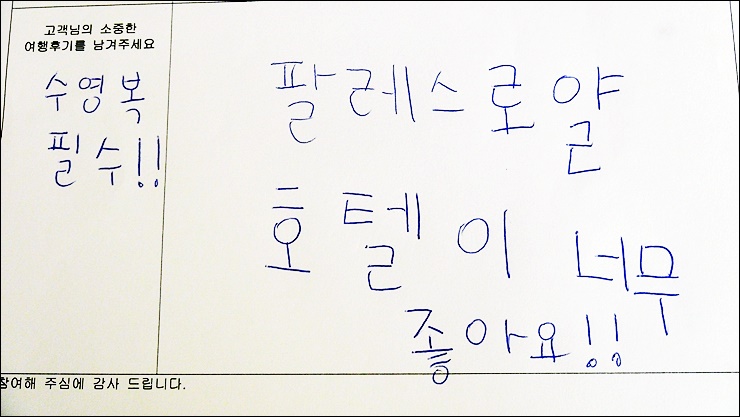 고객님의 소중한
여행후기를 남겨주세요
수영복
필수!!
팔레스로얄
호텔이 너무
좋아요!!
참여해 주심에 감사 드립니다.